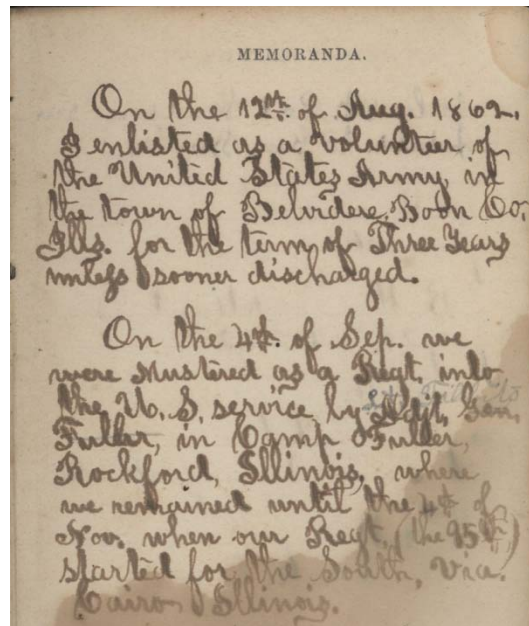 MEMORANDA.
On the 12th. of Aug. 1862,
I enlisted as a volunteer of
the United States Army, in
the town of Belvidere, Boon Co.
Ills. for the term of Three Years
unless sooner discharged.
On the 4th. of Sep. we
were Mustered as a Regt. into
the U. S. service by Adjt. Gen.
Fuller, in Camp Fuller,
Rockford, Illinois, where
we remained until the 4th of
Nov. when our Regt. (the 95th)
started for the South, via.
Cairo Illinois.